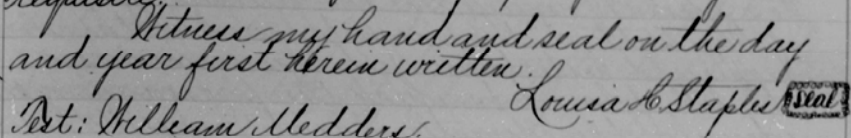 requisite.
Witness my hand and seal on the day
and year first herein written.
Louisa H Staples Seal
Test: William Medders.